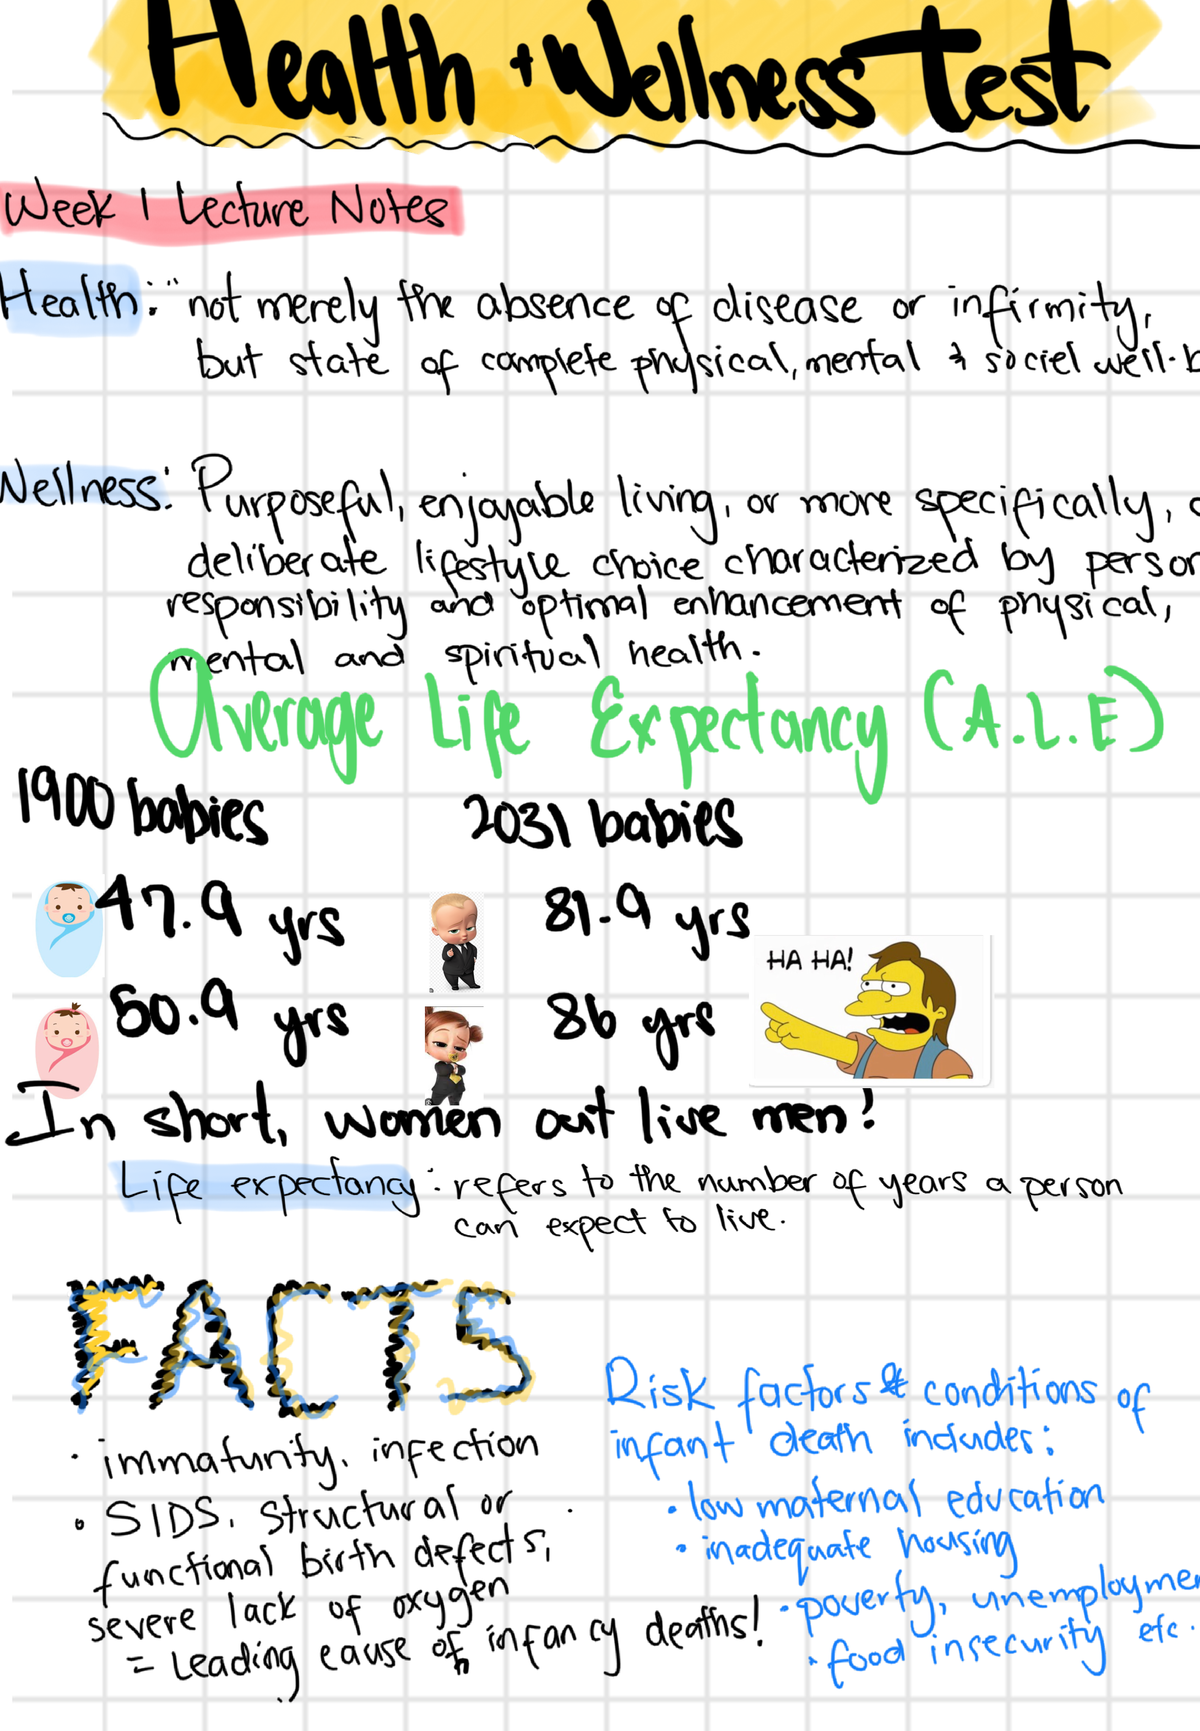 Health + Wellness Test
Week 1 Lecture Notes
Health: "not merely the absence of disease or infirmity,
but state of complete physical, mental & sociel well-b
Wellness: Purposeful, enjoyable living, or more specifically, a
deliberate lifestyle choice characterized by person
responsibility and optimal enhancement of physical,
mental and spiritual health.
Average Life Expectancy (A.L.E)
1900 babies 2031 babies
47.9 yrs 81.9 yrs
HA HA!
50.9 yrs 86 yrs
In short, women out live men!
Life expectancy: refers to the number of years a person
can expect to live.
FACTS
Risk factors & conditions of
infant death includes:
• low maternal education
• inadequate housing
• poverty, unemployme
• food insecurity etc.
• immaturity, infection
• SIDS, structural or
functional birth defects,
severe lack of oxygen
= Leading cause of infancy deaths!